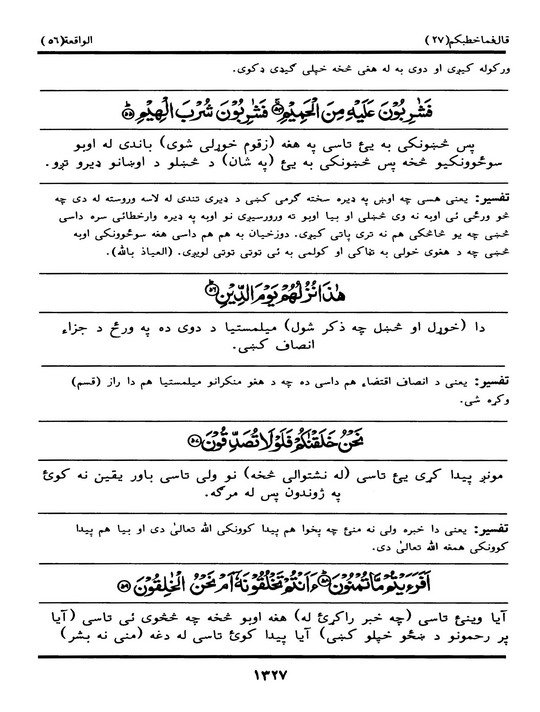 قال فما خطبکم (۲۷) الواقعة (۵۶)
ورکوله کیږی او دوی به له هغی څخه خپلی ګیډی ډکوی.
فَشٰرِبُوْنَ عَلَیْهِ مِنَ الْحَمِیْمِ ۵۴ فَشٰرِبُوْنَ شُرْبَ الْهِیْمِ ۵۵
پس څښونکی به یئ تاسی په هغه (زقوم خوړلی شوی) باندی له اوبو
سوځوونکیو څخه پس څښونکی به یئ (په شان) د څښلو د اوښانو ډیرو تږو.
تفسیر: یعنی هسی چه اوښ په ډیره سخته ګرمی کښی د ډیری تندی له لاسه وروسته له دی چه
څو ورځی ئی اوبه نه وی څښلی او بیا اوبو ته ورورسیږی نو اوبه په ډیره وارخطائی سره داسی
څښی چه یو څاڅکی هم نه تری پاتی کیږی. دوزخیان به هم هم داسی هغه سوځوونکی اوبه
څښی چه د هغوی خولی به تڼاکی او کولمی به ئی توتی توتی لویږی. (العیاذ بالله).
هٰذَا نُزُلُهُمْ یَوْمَ الدِّیْنِ ۵۶
دا (خوړل او څښل چه ذکر شول) میلمستیا د دوی ده په ورځ د جزاء
انصاف کښی.
تفسیر: یعنی د انصاف اقتضاء هم داسی ده چه د هغو منکرانو میلمستیا هم دا راز (قسم)
وکړه شی.
نَحْنُ خَلَقْنٰکُمْ فَلَوْلَا تُصَدِّقُوْنَ ۵۷
مونږ پیدا کړی یئ تاسی (له نشتوالی څخه) نو ولی تاسی باور یقین نه کوئ
په ژوندون پس له مرګه.
تفسیر: یعنی دا خبره ولی نه منئ چه پخوا هم پیدا کوونکی الله تعالیٰ دی او بیا هم پیدا
کوونکی همغه الله تعالیٰ دی.
اَفَرَءَیْتُمْ مَّا تُمْنُوْنَ ۵۸ ءَاَنْتُمْ تَخْلُقُوْنَهٗۤ اَمْ نَحْنُ الْخٰلِقُوْنَ ۵۹
آیا وینئ تاسی (چه خبر راکړئ له) هغه اوبو څخه چه څڅوی ئی تاسی (آیا
پر رحمونو د ښځو خپلو کښی) آیا پیدا کوئ تاسی له دغه (منی نه بشر)
۱۳۲۷